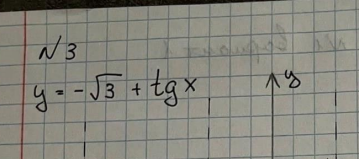 №3
y = -√3 + tg x
y